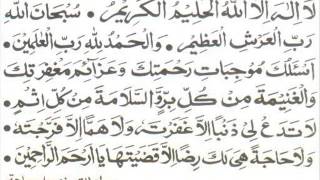 لَا اِلٰهَ اِلَّا اللهُ الْحَلِيْمُ الْكَرِيْمُ • سُبْحَانَ اللهِ
رَبِّ الْعَرْشِ الْعَظِيْمِ • وَالْحَمْدُ لِلّٰهِ رَبِّ الْعٰلَمِيْنَ •
اَسْئَلُكَ مُوْجِبَاتِ رَحْمَتِكَ وَعَزَائِمَ مَغْفِرَتِكَ
وَالْغَنِيْمَةَ مِنْ كُلِّ بِرٍّ وَالسَّلَامَةَ مِنْ كُلِّ اِثْمٍ •
لَا تَدَعْ لِيْ ذَنْبًا اِلَّا غَفَرْتَهُ وَلَا هَمًّا اِلَّا فَرَّجْتَهُ
وَلَا حَاجَةً هِيَ لَكَ رِضًا اِلَّا قَضَيْتَهَا يَا اَرْحَمَ الرَّاحِمِيْنَ •